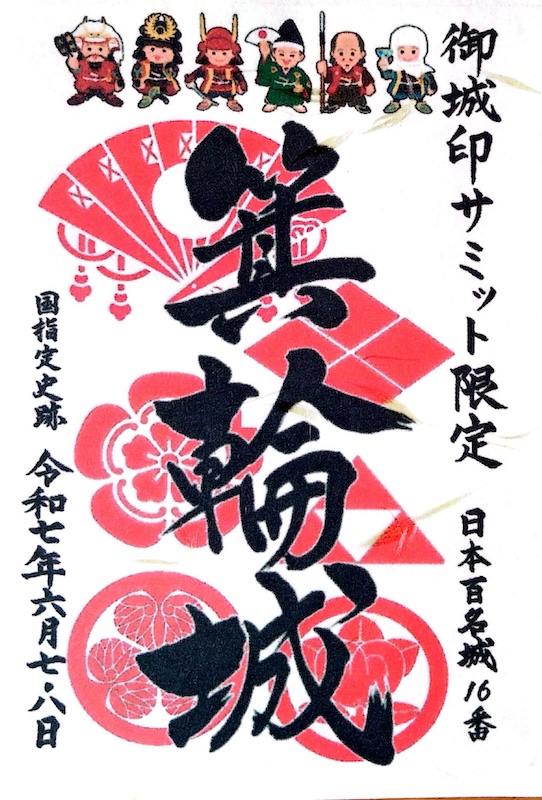 御城印サミット限定
日本百名城16番
箕輪城
国指定史跡
令和七年六月七・八日